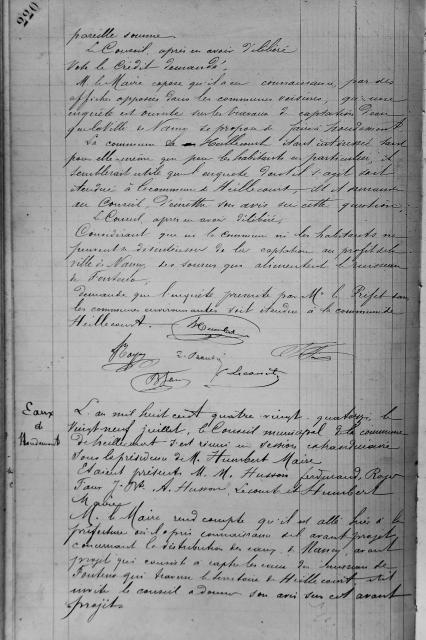 220
pareille somme
Le Conseil, après en avoir délibéré
Vote le Crédit demandé.
M. le Maire expose qu'il a eu connaissance, par des
affiches apposées dans les communes voisines, qu'une
enquête est ouverte sur les travaux de captation d'eau
que la Ville de Nancy se propose de faire à
La commune de Heillecourt étant intéressée tant
pour elle-même que pour les habitants en particulier, il
semblerait utile que l'enquête dont il s'agit soit
étendue à la commune d'Heillecourt, et il demande
au Conseil d'émettre son avis sur cette question.
Le Conseil, après en avoir délibéré,
Considérant que ni la commune ni les habitants ne
peuvent se désintéresser de la captation au profit de la
ville de Nancy, des sources qui alimentent le ruisseau
de
demande que l'enquête prescrite par Mr le Préfet dans
les communes environnantes soit étendue à la commune de
Heillecourt.
Humbert
Royer
Lecourt
Eaux
de
L'an mil huit cent quatre vingt quatorze le
vingt neuf juillet, le Conseil municipal de la commune
de heillecourt s'est réuni en session extraordinaire
sous la présidence de M. Humbert Maire
Etaient présent M. M. Husson Royer
A. Husson, Lecourt et Humbert
Maire
M. le Maire rend compte qu'il est allé hier à la
préfecture où il a pris connaissance de l'avant projet
concernant la distribution des eaux de Nancy, avant
projet qui consiste à capter les eaux du ruisseau de
qui traverse le territoire de Heillecourt et il
invite le conseil à donner son avis sur cet avant
projet.